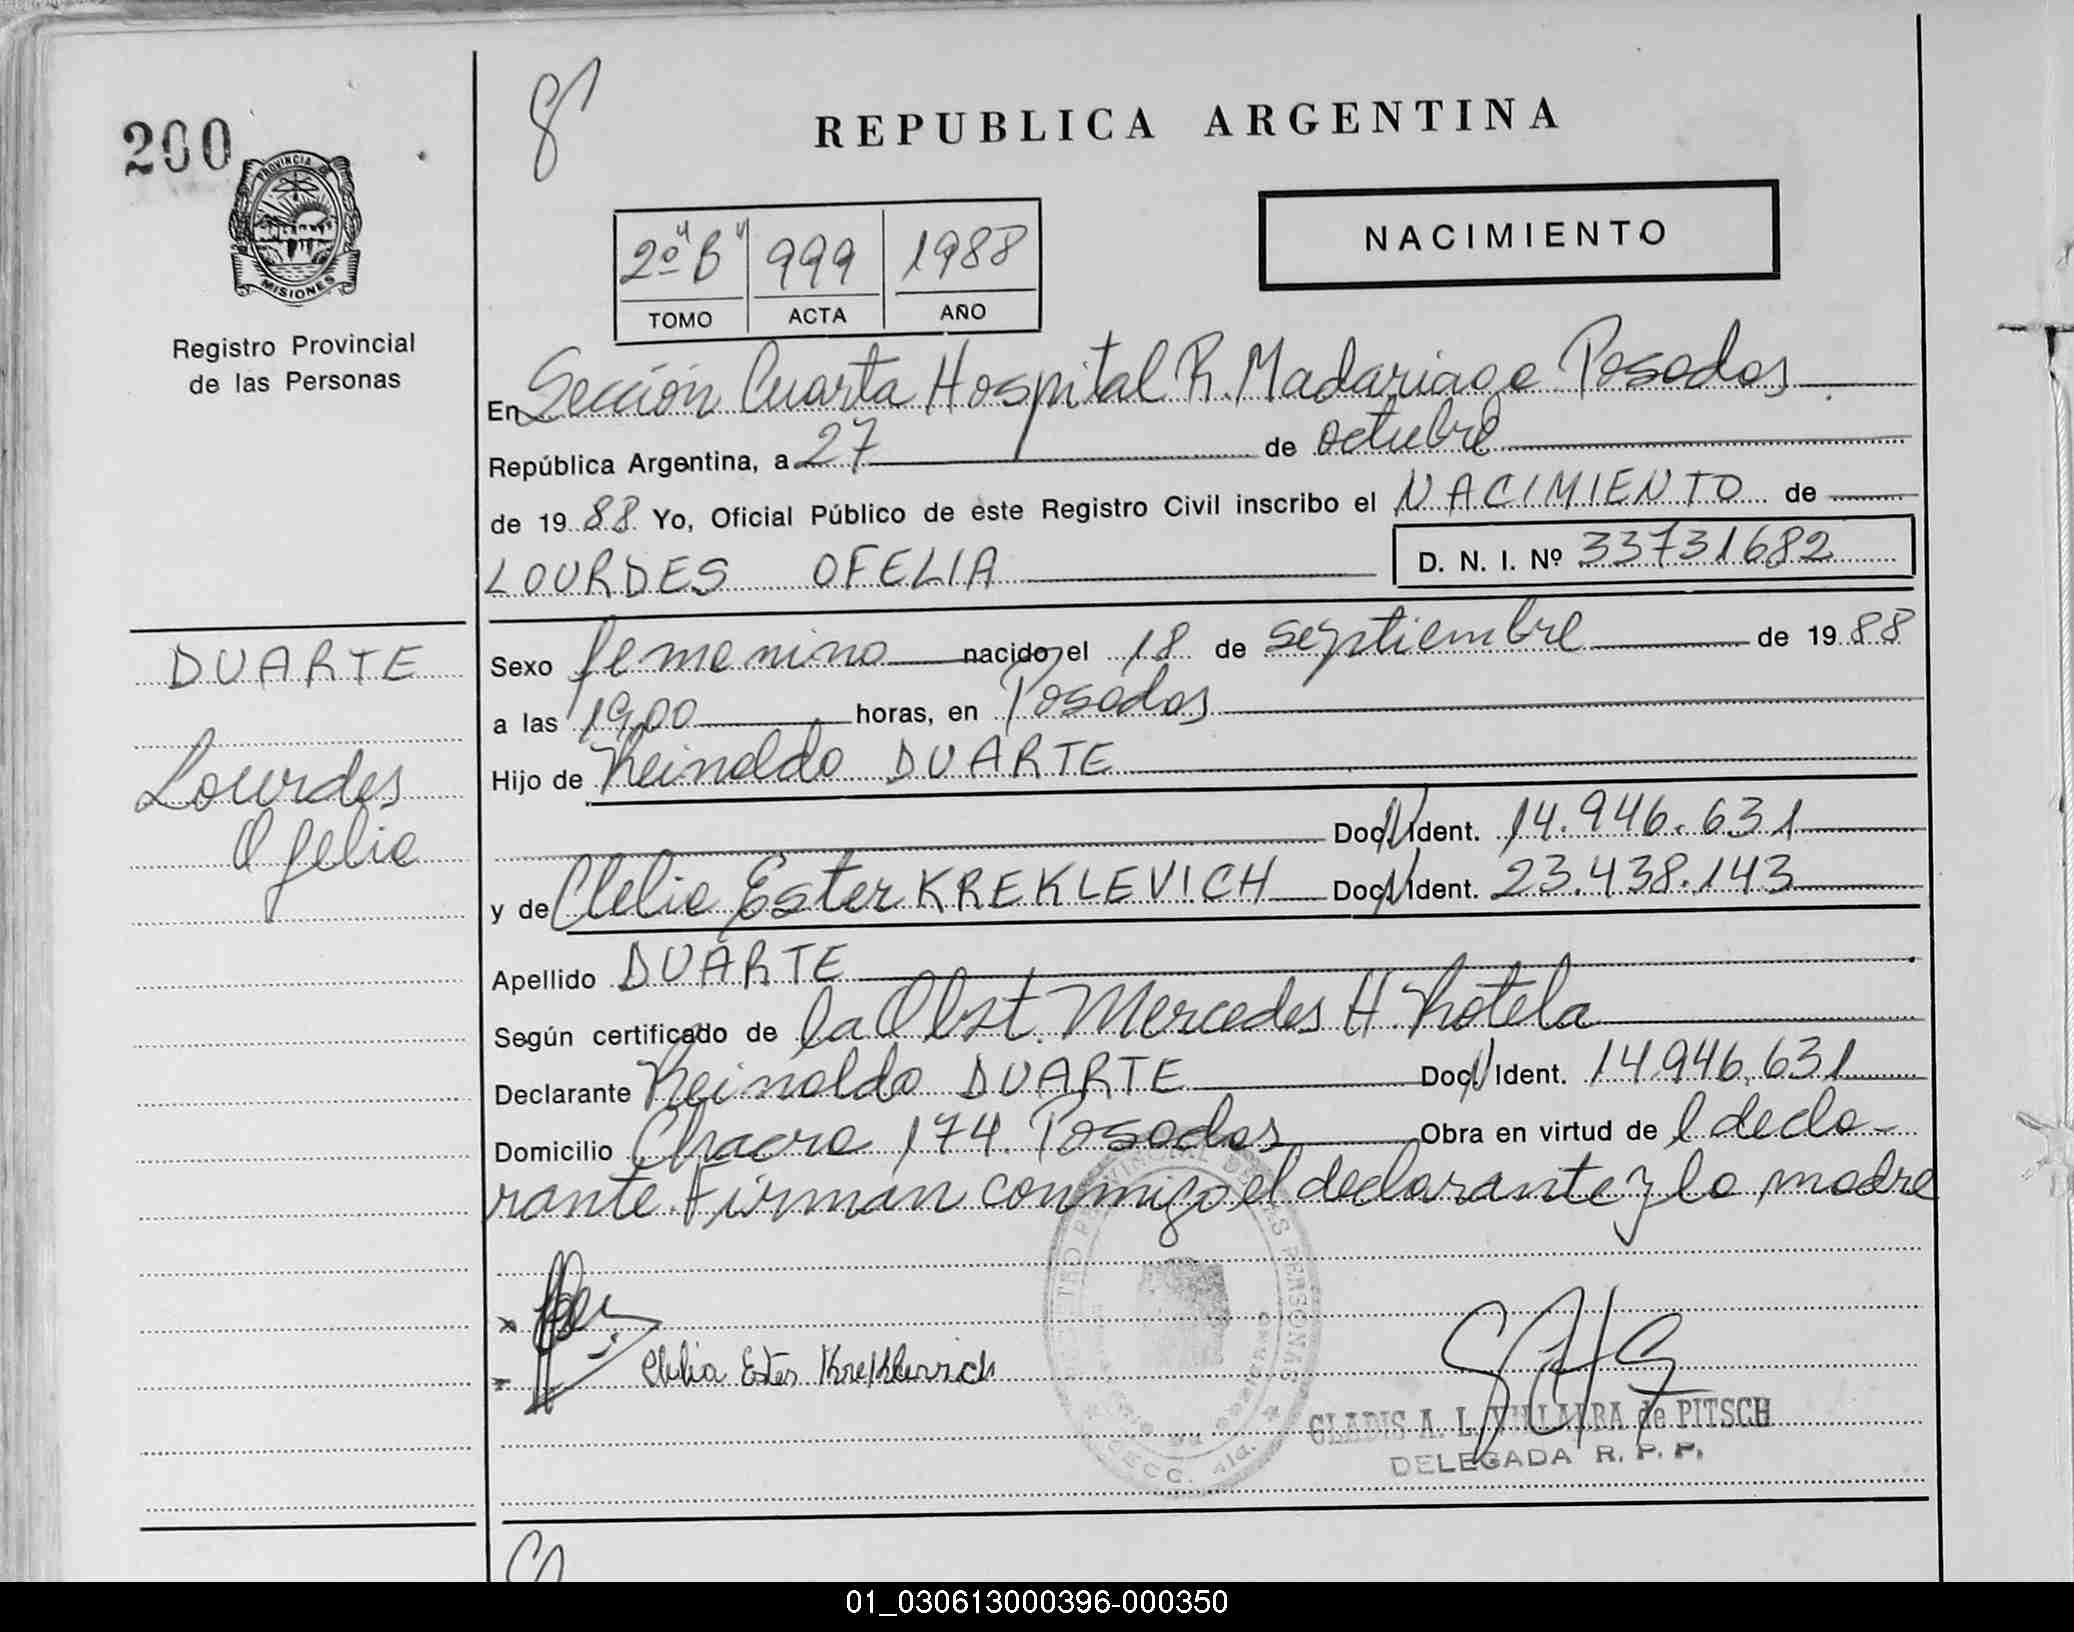 200
PROVINCIA
MISIONES
Registro Provincial
de las Personas
REPUBLICA ARGENTINA
2º "B" 999 1988
TOMO ACTA AÑO
NACIMIENTO
En Sección Cuarta Hospital R. Madariaga Posadas
República Argentina, a 27 de octubre
de 1988 Yo, Oficial Público de este Registro Civil inscribo el NACIMIENTO de
LOURDES OFELIA D. N. I. Nº 33731682
DUARTE
Lourdes
Ofelia
Sexo femenino nacido el 18 de septiembre de 1988
a las 19,00 horas, en Posadas
Hijo de Reinaldo DUARTE
Doc. Ident. 14.946.631
y de Clelia Ester KREKLEVICH Doc. Ident. 23.438.143
Apellido DUARTE
Según certificado de la Obst. Mercedes H. Rotela
Declarante Reinaldo DUARTE Doc. Ident. 14946.631
Domicilio Chacra 174. Posadas Obra en virtud de l decla-
rante. Firman conmigo el declarante y la madre
Clelia Ester Kreklevich
GLADIS A. L. VILLALBA de PITSCH
DELEGADA R. P. P.
01_030613000396-000350